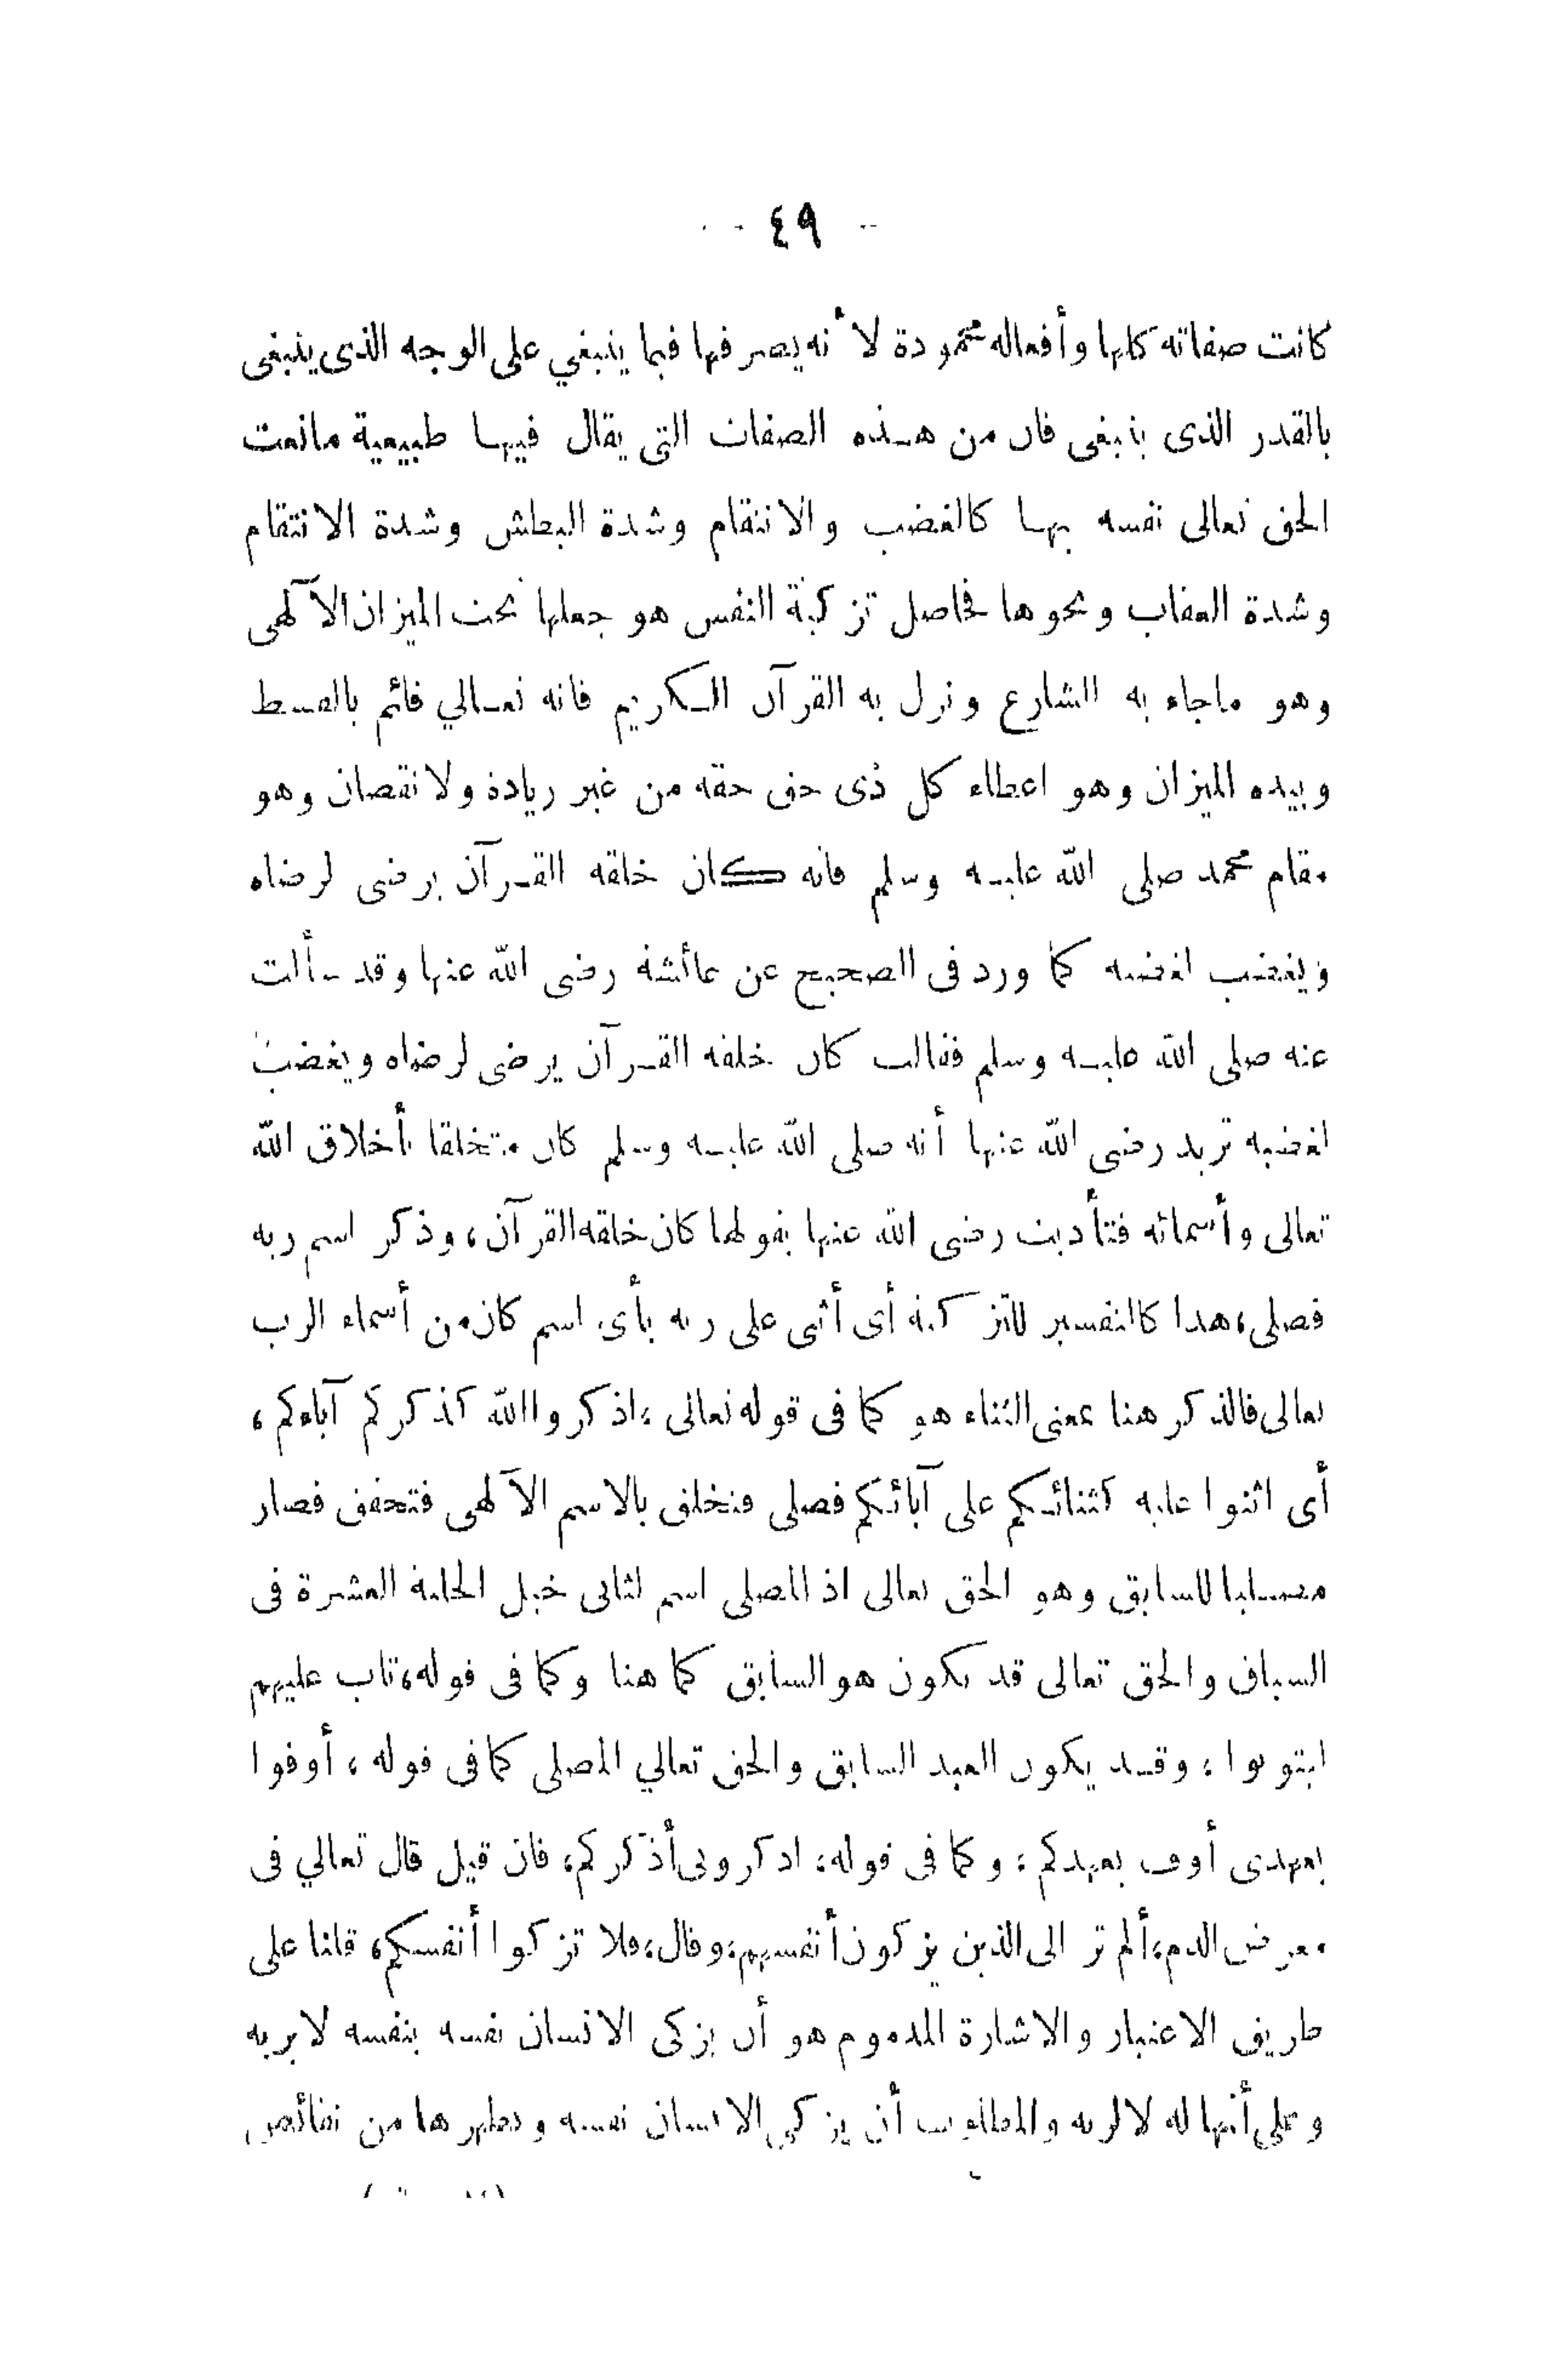 - ٤٩ -
كانت صفاته كلها وأفعاله محمودة لأنه يصرفها فيما ينبغي على الوجه الذى ينبغى
بالقدر الذى ينبغى فان من هذه الصفات التى يقال فيها طبيعية مانعت
الحق تعالى نفسه بها كالغضب والانتقام وشدة البطش وشدة الانتقام
وشدة العقاب ونحوها فحاصل تزكية النفس هو جعلها تحت الميزان الآلهى
وهو ماجاء به الشارع ونزل به القرآن الكريم فانه تعالي قائم بالقسط
وبيده الميزان وهو اعطاء كل ذى حق حقه من غير زيادة ولا نقصان وهو
مقام محمد صلى الله عليه وسلم فانه كان خلقه القرآن يرضى لرضاه
ويغضب لغضبه كما ورد فى الصحيح عن عائشة رضى الله عنها وقد سألت
عنه صلى الله عليه وسلم فقالت كان خلقه القرآن يرضى لرضاه ويغضب
لغضبه تريد رضى الله عنها أنه صلى الله عليه وسلم كان متخلقا بأخلاق الله
تعالى وأسمائه فتأدبت رضى الله عنها بقولها كان خلقه القرآن، وذكر اسم ربه
فصلى، هذا كالتفسير للتزكية أى أثنى على ربه بأى اسم كان من أسماء الرب
تعالى فالذكر هنا بمعنى الثناء هو كما فى قوله تعالى، اذكروا الله كذكركم آباءكم،
أى اثنوا عليه كثنائكم على آبائكم فصلى فتخلق بالاسم الآلهى فتحقق فصار
مصليا للسابق وهو الحق تعالى اذ المصلى اسم لثانى خيل الحلبة العشرة فى
السباق والحق تعالى قد يكون هو السابق كما هنا وكما فى قوله، تاب عليهم
ليتوبوا، وقد يكون العبد السابق والحق تعالي المصلى كما فى قوله، أوفوا
بعهدى أوف بعهدكم، وكما فى قوله، اذكرونى أذكركم، فان قيل قال تعالي فى
معرض الذم، ألم تر الى الذين يزكون أنفسهم، وقال، فلا تزكوا أنفسكم، قلنا على
طريق الاعتبار والاشارة المذموم هو أن يزكى الانسان نفسه بنفسه لا بربه
وعلى أنها له لا لربه والمطلوب أن يزكى الانسان نفسه ويطهرها من نقائص